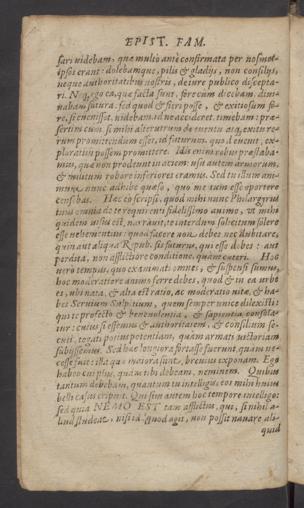 EPIST. FAM.
fari videbam, quæ multo ante confirmata per nosmet-
ipsos erant: dolebamque, pilis & gladijs, non consilijs,
neque authoritatibus nostris, de iure publico discepta-
ri. Neq, ego ea, quæ facta sunt, fore cum dicebam, diui-
nabam futura: sed quod & fieri posse, & exitiosum fo-
re, si euenisset, videbam, id ne accideret, timebam: præ-
sertim cum, si mihi alterutrum de euentu atq, exitu re-
rum promittendum esset, id futurum, quod euenit, ex-
ploratius possem promittere. Iis enim rebus præstaba-
mus, quæ non prodeunt in aciem: usu autem armorum,
& militum robore inferiores eramus. Sed tu illum ani-
mum nunc adhibe quæso, quo me tum esse oportere
censebas. Hæc eo scripsi, quod mihi nunc Philargyrus
tuus omnia de te requirenti fidelissimo animo, vt mihi
quidem visus est, narrauit, te interdum solicitum solere
esse vehementius: quod facere non debes nec dubitare,
quin aut aliqua Rpub. sis futurus, qui esse debes: aut
perdita, non afflictiore conditione, quàm cæteri. Hoc
vero tempus, quo exanimati omnes, & suspensi sumus,
hoc moderatiore animo ferre debes, quod & in ea urbe
es, ubi nata, & alta est ratio, ac moderatio vitæ, & ha-
bes Seruium Sulpitium, quem semper unice dilexisti:
qui te profecto & beneuolentia, & sapientia consola-
tur: cuius si essemus & authoritatem, & consilium se-
cuti, togati potius potentiam, quàm armati uictoriam
subijssemus. Sed hæc longiora fortasse fuerunt, quàm ne-
cesse fuit: illa quæ maiora sunt, breuius exponam. Ego
habeo cui plus, quàm tibi debeam, neminem. Quibus
tantum debebam, quantum tu intelligis, eos mihi huius
belli casus eripuit. Qui sim autem hoc tempore intelligo:
sed quia NEMO EST tam afflictus, qui, si nihil a-
liud studeat, nisi id quod agit, non possit nauare ali-
quid